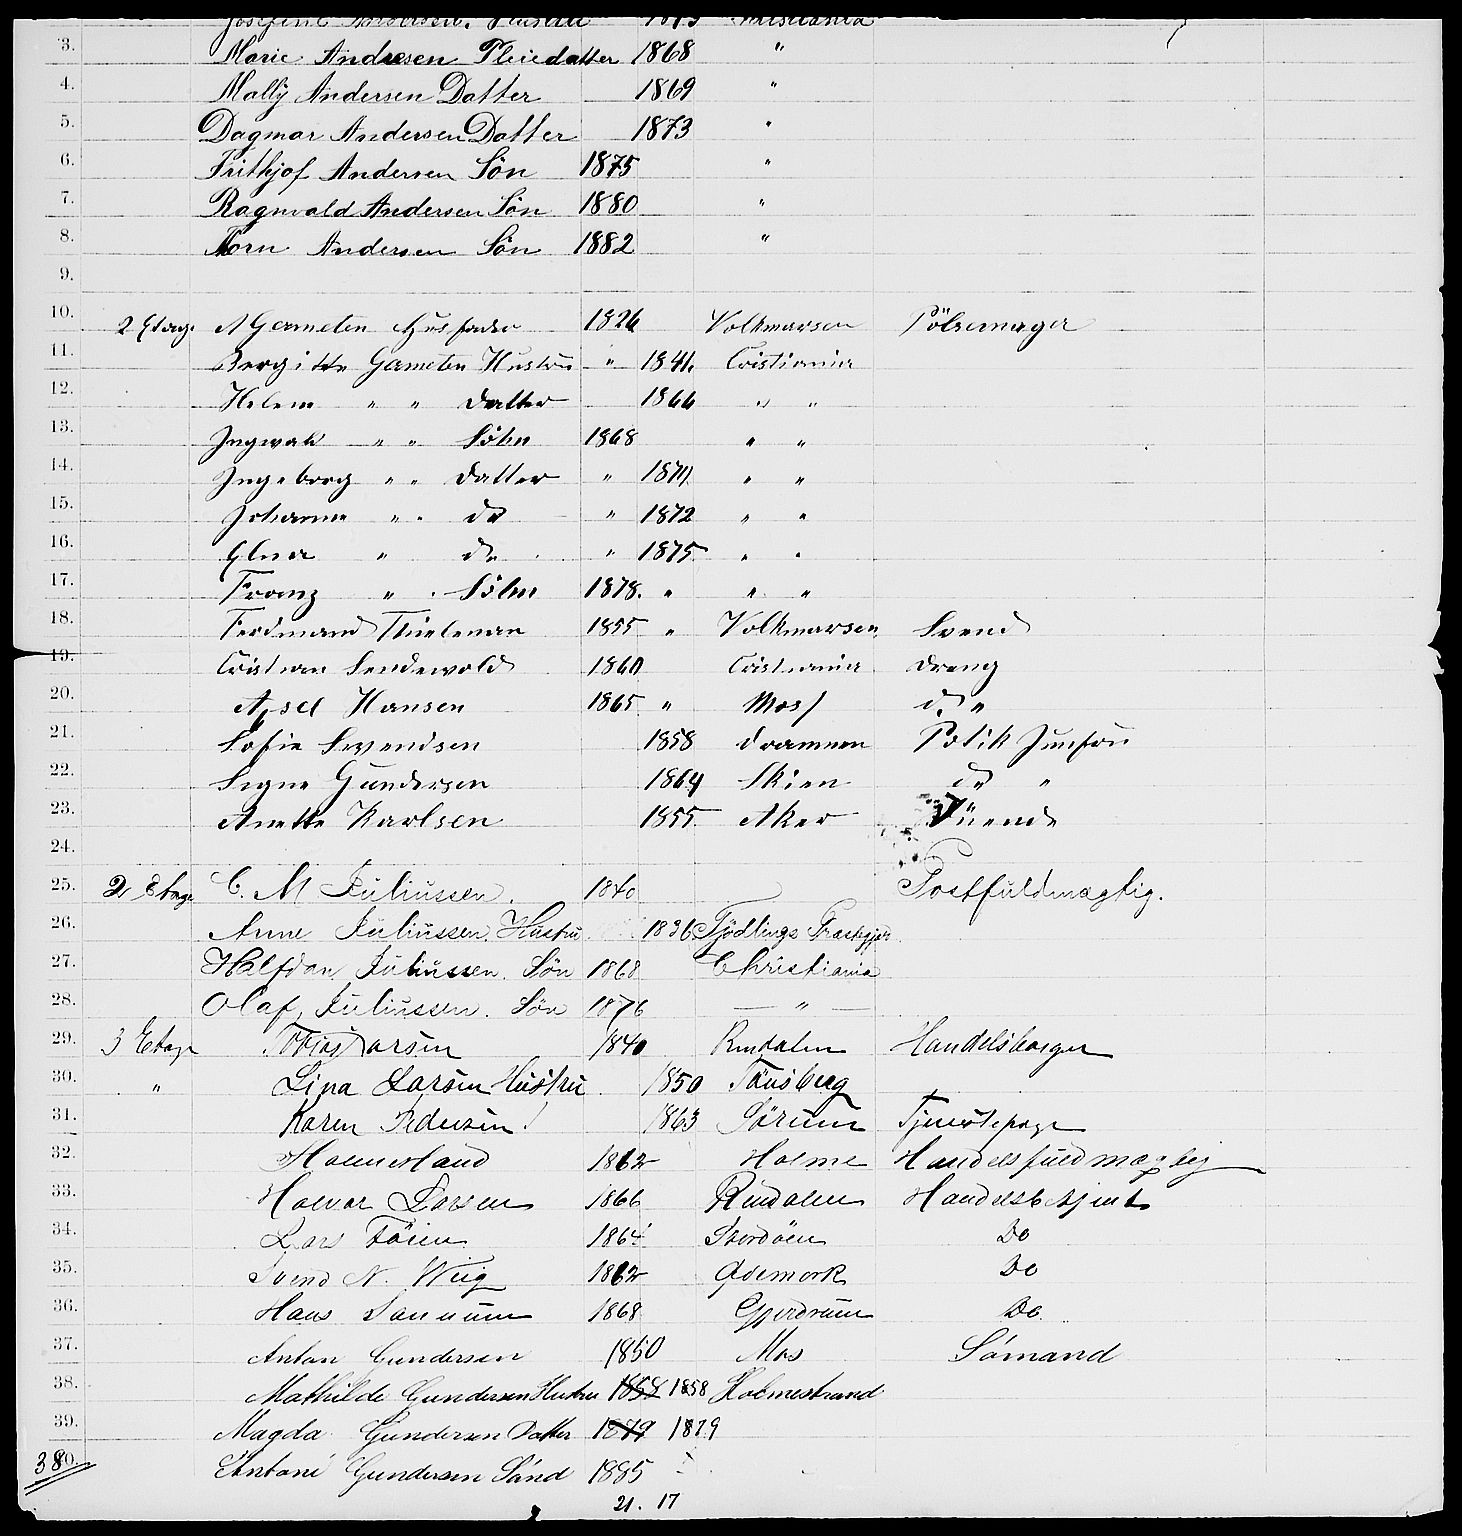 Josefine Andersen. Hustru 1843 Christiania
3. Marie Andresen Pleiedatter 1868 "
4. Mally Andersen Datter 1869 "
5. Dagmar Andersen Datter 1873 "
6. Frithjof Andersen Sön 1875 "
7. Ragnvald Andersen Sön 1880 "
8. Andersen Sön 1882 "
9.
10. 2 Etage A Gameten Husfader 1826 Volkmarsen Pölsemager
11. Bergitte Gameten Hustru " 1841. Cristiania
12. Helene " " Datter 1866 " "
13. Ingwald " " Söhn 1868 " "
14. Ingeborg " " Datter " 1870 " "
15. Johanne " " do " 1872 " "
16. Elna " do " 1875 " "
17. Franz " " Söhn 1878. " " "
18. Ferdinand Thieleman 1855 " Volkmarsen Svend
19. Cristian Sendewold 1860 Cristiania Dreng
20. Axsel Hansen 1865 " Moss do "
21. Sofie Swendsen 1858 Drammen Butik Jumfru
22. Signe Gundersen 1864 Skien do "
23. Anette Karlsen 1855 Aker
24.
25. 2 Etage C. M Juliussen. 1840 Postfuldmægtig.
26. Anne Juliussen. Hustru 1836 Tjödlings Præstegjæld
27. Halfdan Juliussen. Sön 1868 Christiania
28. Olaf, Juliussen. Sön 1876 — " —
29. 3 Etage Tobias Larsen 1840 Rendalen Handelsborger
30. " Lina Larsen Hustru 1850 Tönsberg
31. Karen Pedersen 1863 Sörum Tjenestepige
32. 1862 Holme Handelsfuldmægtig
33. Halvor Larsen 1866 Rendalen Handelsbetjent
34. Lars Töien 1864 Stordöen Do
35. Svend N. Wiig 1862 Ødemark Do
36. Hans 1868 Gjerdrum Do.
37. Anton Gundersen 1850 Mos Sómand
38. Mathilde Gundersen Hustru 1858 1858 Holmestrand
39. Magda Gundersen Datter 1879 1879
40. 38 Antoni Gundersen Sónd 1885 "
21. 17